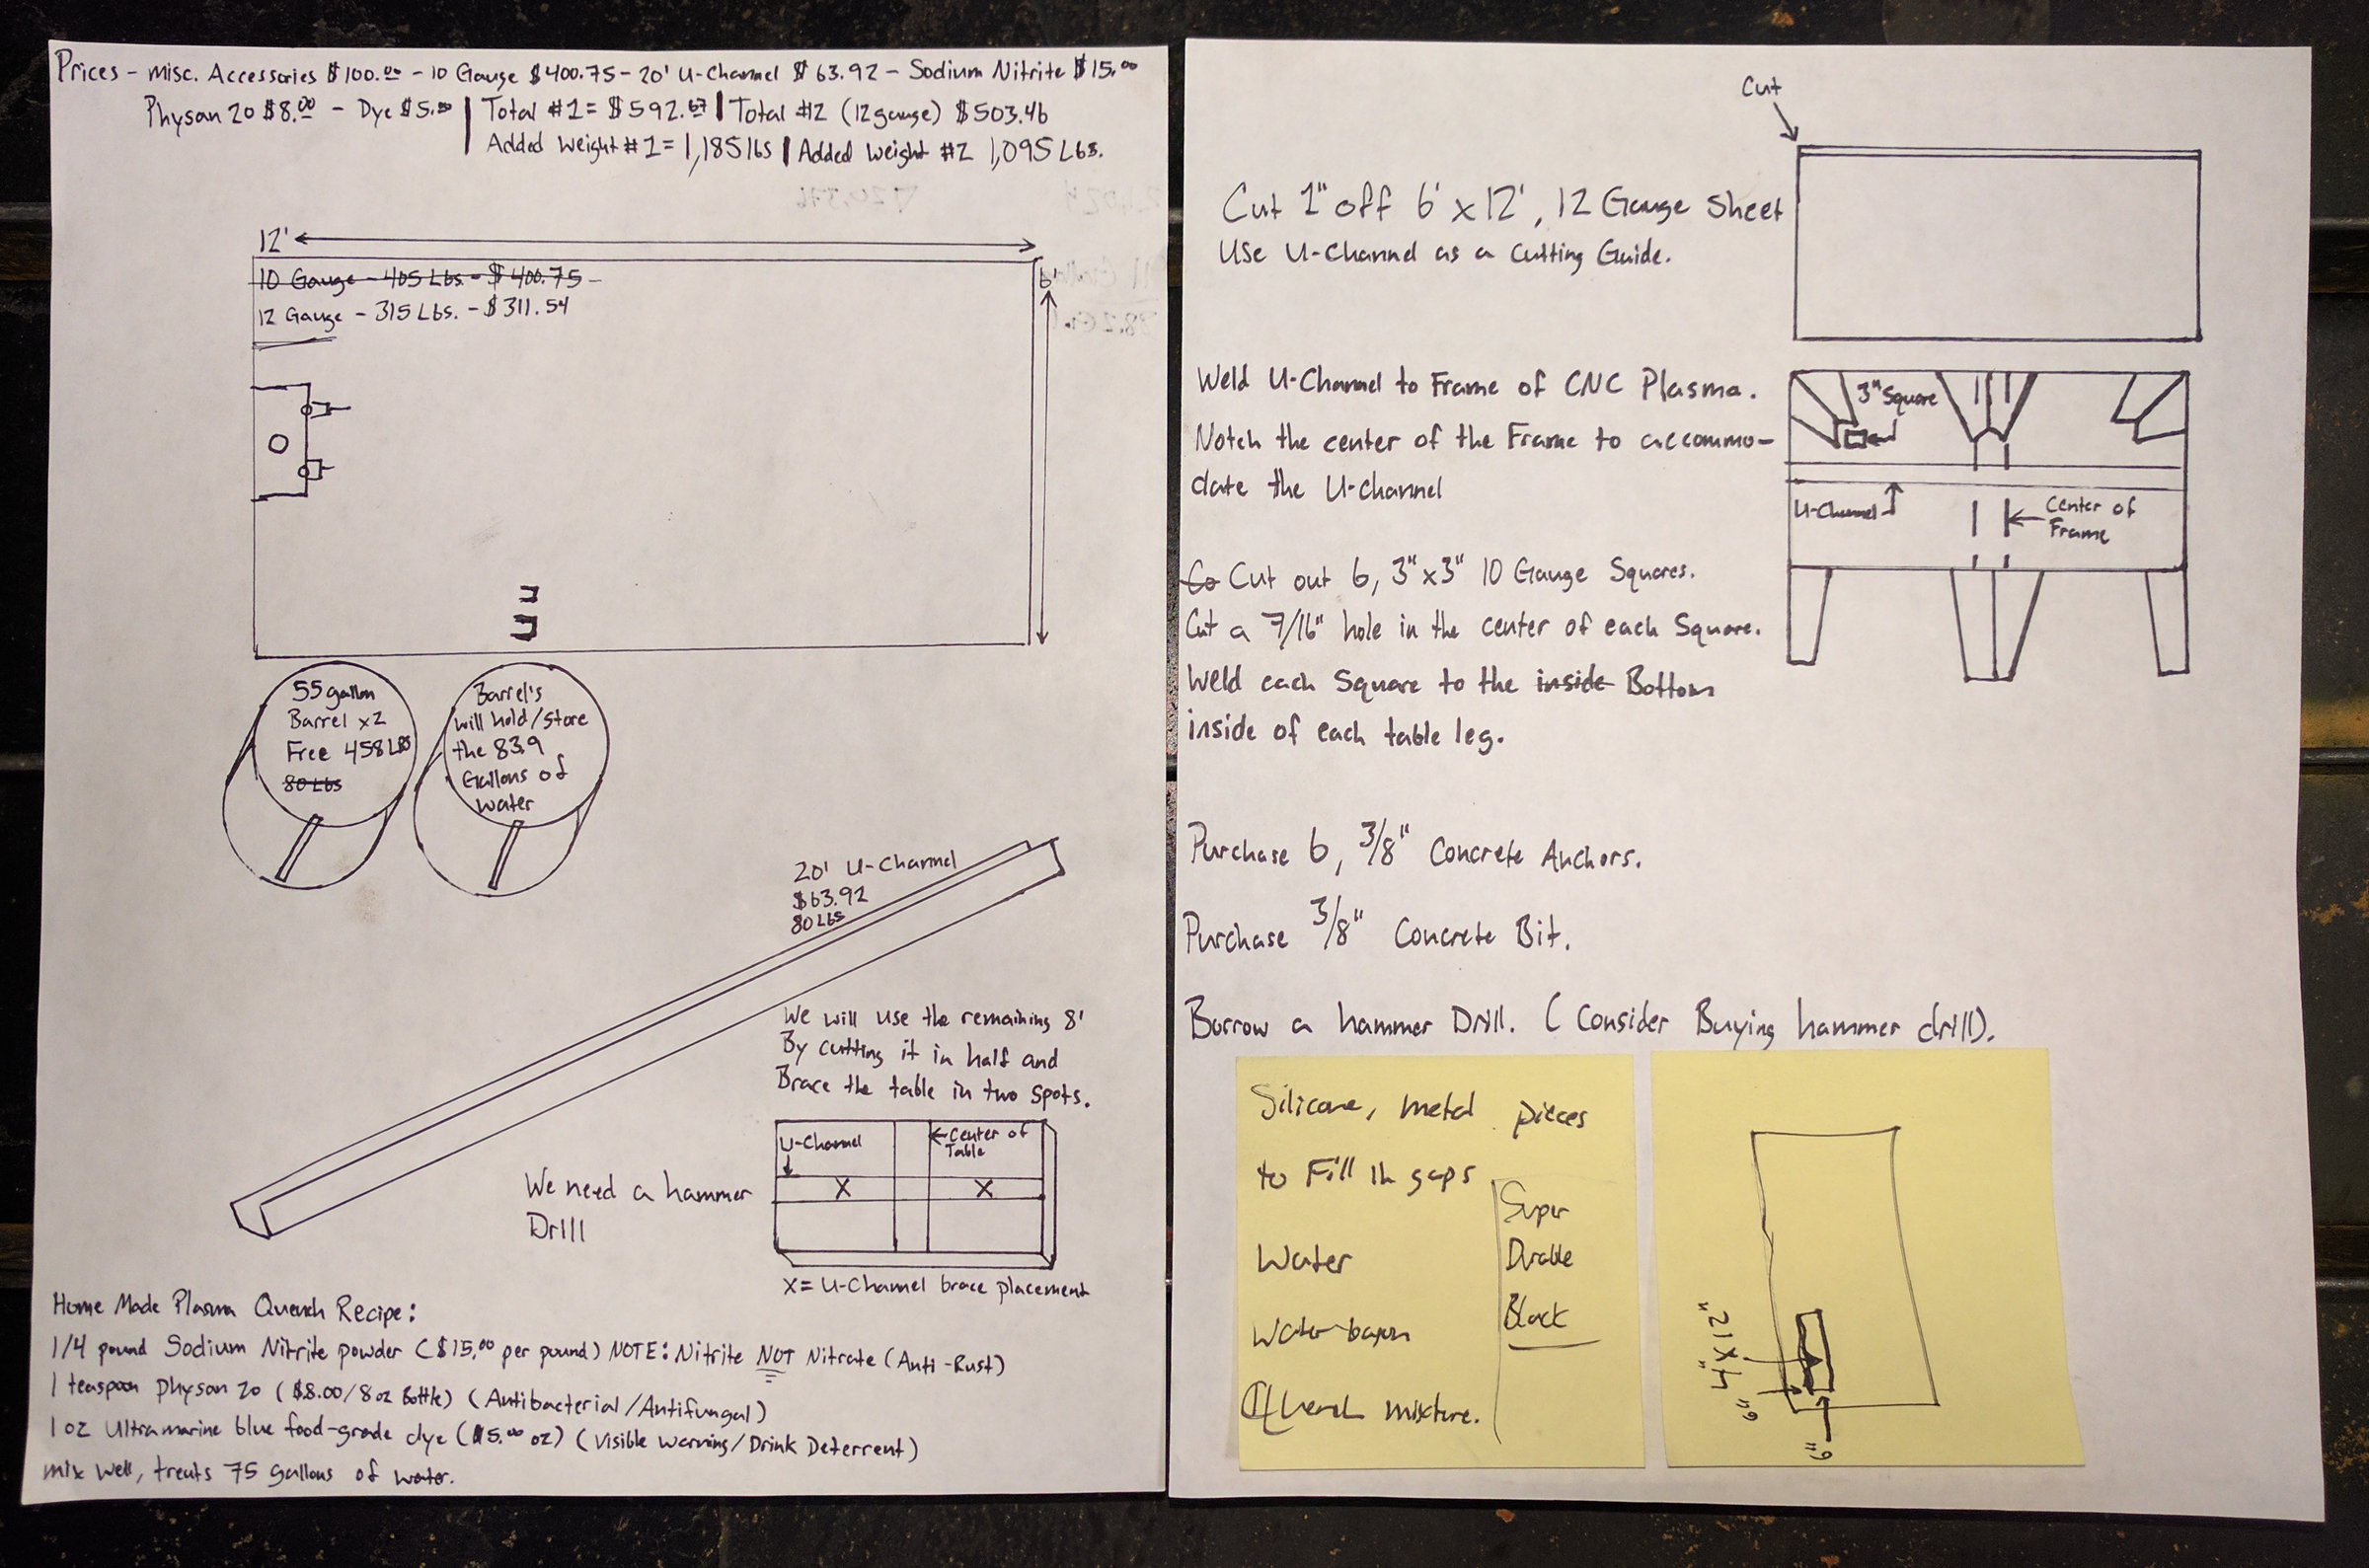 Prices - misc. Accessories $100.00 - 10 Gauge $400.75 - 20' U-Channel $63.92 - Sodium Nitrite $15.00
Physan 20 $8.00 - Dye $5.00 | Total #1 = $592.67 | Total #2 (12 gauge) $503.46
Added Weight #1 = 1,185 lbs | Added Weight #2 1,095 Lbs.
12'
6'
10 Gauge - 405 Lbs. - $400.75 -
12 Gauge - 315 Lbs. - $311.54
55 gallon
Barrel x2
Free 458 Lbs
80 Lbs
Barrel's
will hold/store
the 83.9
Gallons of
water
20' U-Channel
$63.92
80 Lbs
We will use the remaining 8'
By cutting it in half and
Brace the table in two spots.
U-Channel
Center of
Table
X X
We need a hammer
Drill
X = U-Channel brace placement
Home Made Plasma Quench Recipe:
1/4 pound Sodium Nitrite powder ($15.00 per pound) NOTE: Nitrite NOT Nitrate (Anti-Rust)
1 teaspoon physan 20 ($8.00/8oz Bottle) (Antibacterial/Antifungal)
1 oz Ultramarine blue food-grade dye ($5.00 oz) (Visible Warning/Drink Deterrent)
mix well, treats 75 gallons of water.
Cut
Cut 1" off 6' x 12', 12 Gauge Sheet
Use U-Channel as a Cutting Guide.
Weld U-Channel to Frame of CNC Plasma.
Notch the center of the Frame to accommo-
date the U-Channel
3" Square
U-Channel
Center of
Frame
Co Cut out 6, 3"x3" 10 Gauge Squares.
Cut a 7/16" hole in the center of each Square.
Weld each Square to the inside Bottom
inside of each table leg.
Purchase 6, 3/8" Concrete Anchors.
Purchase 3/8" Concrete Bit.
Borrow a hammer Drill. (Consider Buying hammer drill).
Silicone, metal pieces
to Fill in gaps
Water
Water basin
Quench mixture.
Super
Durable
Black
4" x 12"
6"
6"